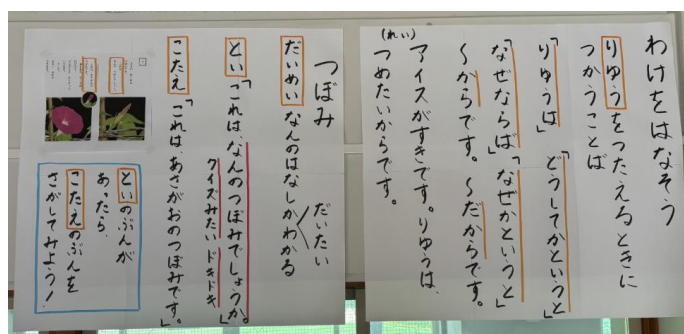 わけをはなそう
りゆうをつたえるときに
つかうことば
「りゆうは」
「どうしてかというと」
「なぜならば」
「なぜかというと」
～からです。
～だからです。
(れい)
アイスがすきです。りゆうは、
つめたいからです。
つぼみ
だいめい
なんのはなしかわかる
だいたい
とい
「これは、なんのつぼみでしょうか。」
クイズみたい
ドキドキ
こたえ
「これは、あさがおのつぼみです。」
といのぶんが
あったら、
こたえのぶんを
さがしてみよう!